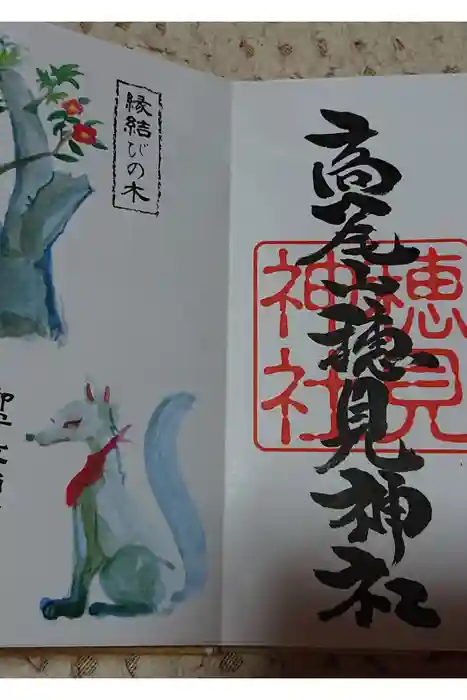 高尾山穂見神社
穂見
神社
縁結びの木